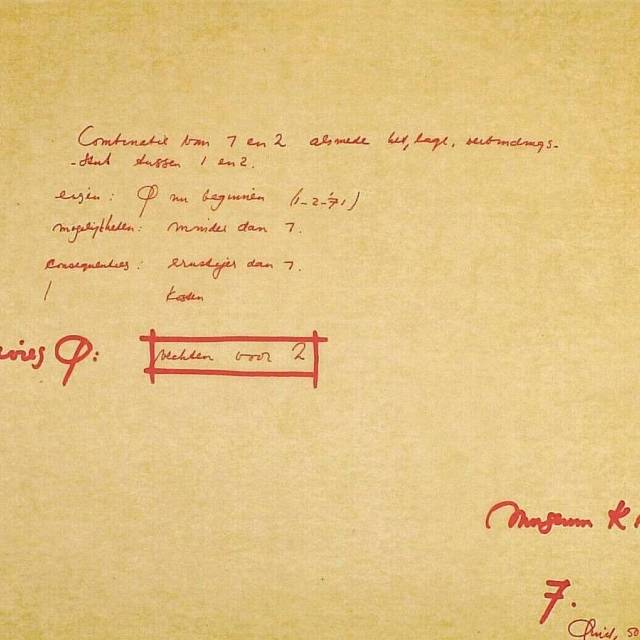 Combinatie van 1 en 2 alsmede het, lage, verbindings-
-stuk tussen 1 en 2.
eisen: φ nu beginnen (1-2-'71)
mogelijkheden: minder dan 7.
consequenties: ernstiger dan 7.
kosten
φ:
vechten voor 2
Museum K
7.